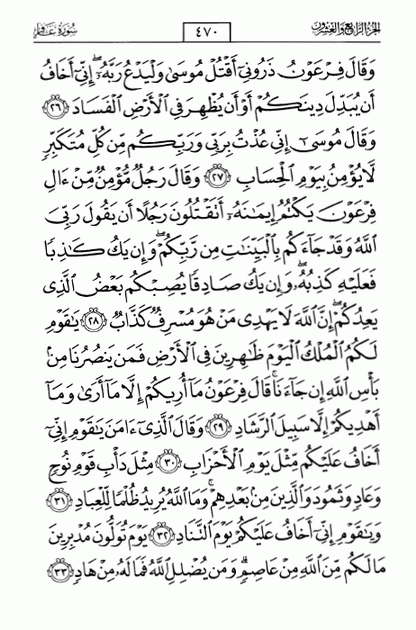 الجزء الرابع والعشرون ٤٧٠ سورة غافر
وَقَالَ فِرْعَوْنُ ذَرُونِىٓ أَقْتُلْ مُوسَىٰ وَلْيَدْعُ رَبَّهُۥٓ ۖ إِنِّىٓ أَخَافُ
أَن يُبَدِّلَ دِينَكُمْ أَوْ أَن يُظْهِرَ فِى ٱلْأَرْضِ ٱلْفَسَادَ ٢٦
وَقَالَ مُوسَىٰٓ إِنِّى عُذْتُ بِرَبِّى وَرَبِّكُم مِّن كُلِّ مُتَكَبِّرٍ
لَّا يُؤْمِنُ بِيَوْمِ ٱلْحِسَابِ ٢٧ وَقَالَ رَجُلٌ مُّؤْمِنٌ مِّنْ ءَالِ
فِرْعَوْنَ يَكْتُمُ إِيمَٰنَهُۥٓ أَتَقْتُلُونَ رَجُلًا أَن يَقُولَ رَبِّىَ
ٱللَّهُ وَقَدْ جَآءَكُم بِٱلْبَيِّنَٰتِ مِن رَّبِّكُمْ ۖ وَإِن يَكُ كَٰذِبًا
فَعَلَيْهِ كَذِبُهُۥ ۖ وَإِن يَكُ صَادِقًا يُصِبْكُم بَعْضُ ٱلَّذِى
يَعِدُكُمْ ۖ إِنَّ ٱللَّهَ لَا يَهْدِى مَنْ هُوَ مُسْرِفٌ كَذَّابٌ ٢٨ يَٰقَوْمِ
لَكُمُ ٱلْمُلْكُ ٱلْيَوْمَ ظَٰهِرِينَ فِى ٱلْأَرْضِ فَمَن يَنصُرُنَا مِنۢ
بَأْسِ ٱللَّهِ إِن جَآءَنَا ۚ قَالَ فِرْعَوْنُ مَآ أُرِيكُمْ إِلَّا مَآ أَرَىٰ وَمَآ
أَهْدِيكُمْ إِلَّا سَبِيلَ ٱلرَّشَادِ ٢٩ وَقَالَ ٱلَّذِىٓ ءَامَنَ يَٰقَوْمِ إِنِّىٓ
أَخَافُ عَلَيْكُم مِّثْلَ يَوْمِ ٱلْأَحْزَابِ ٣٠ مِثْلَ دَأْبِ قَوْمِ نُوحٍ
وَعَادٍ وَثَمُودَ وَٱلَّذِينَ مِنۢ بَعْدِهِمْ ۚ وَمَا ٱللَّهُ يُرِيدُ ظُلْمًا لِّلْعِبَادِ ٣١
وَيَٰقَوْمِ إِنِّىٓ أَخَافُ عَلَيْكُمْ يَوْمَ ٱلتَّنَادِ ٣٢ يَوْمَ تُوَلُّونَ مُدْبِرِينَ
مَا لَكُم مِّنَ ٱللَّهِ مِنْ عَاصِمٍ ۗ وَمَن يُضْلِلِ ٱللَّهُ فَمَا لَهُۥ مِنْ هَادٍ ٣٣